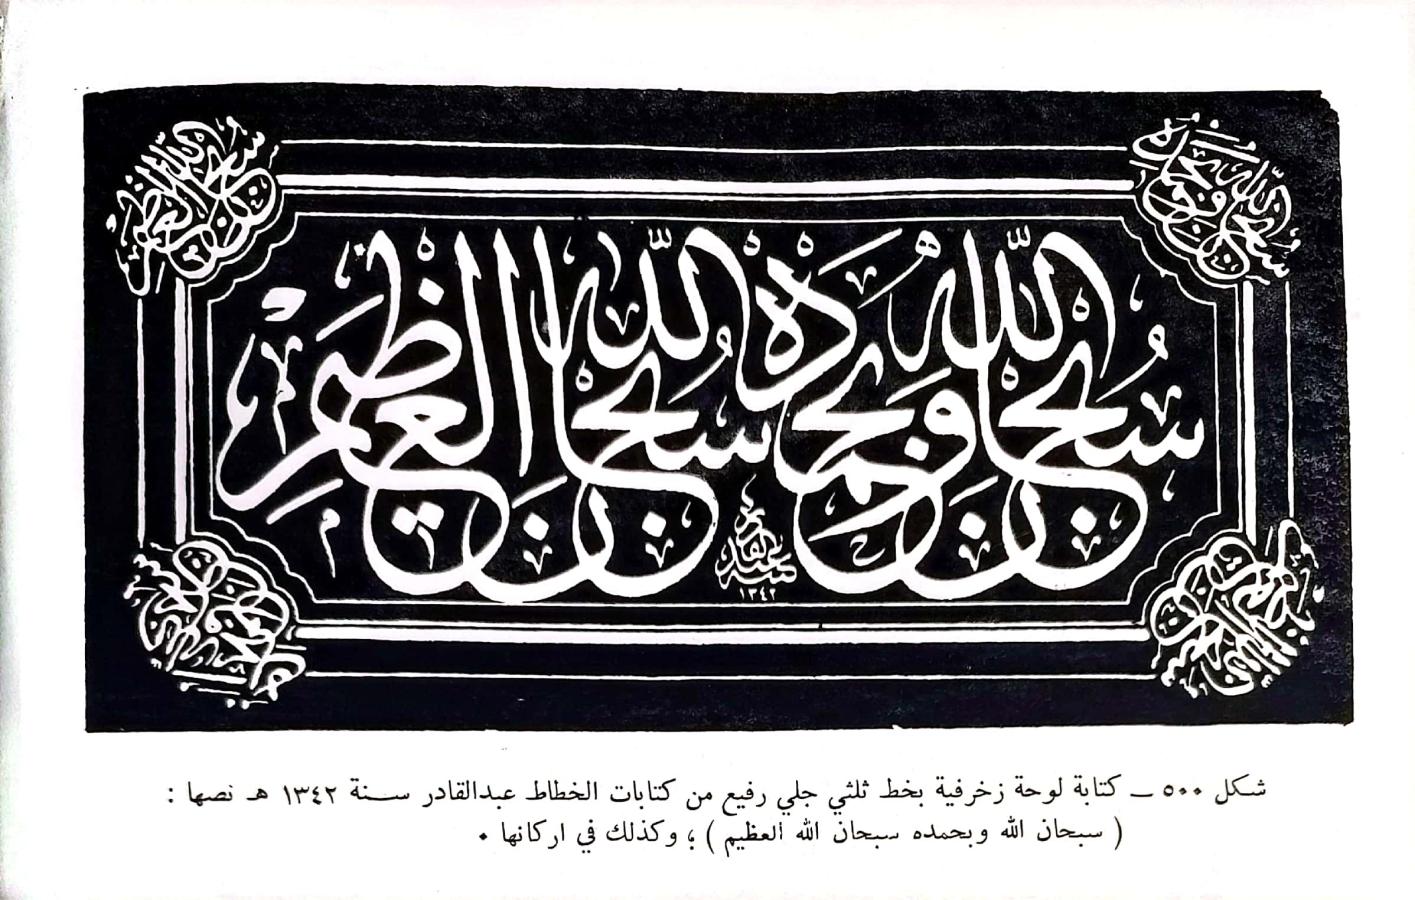 سبحان الله وبحمده سبحان الله العظيم
عبدالقادر
١٣٤٢
شكل ٥٠٠ ــ كتابة لوحة زخرفية بخط ثلثي جلي رفيع من كتابات الخطاط عبدالقادر ســنة ١٣٤٢ هـ نصها :
( سبحان الله وبحمده سبحان الله العظيم ) ؛ وكذلك في اركانها ٠